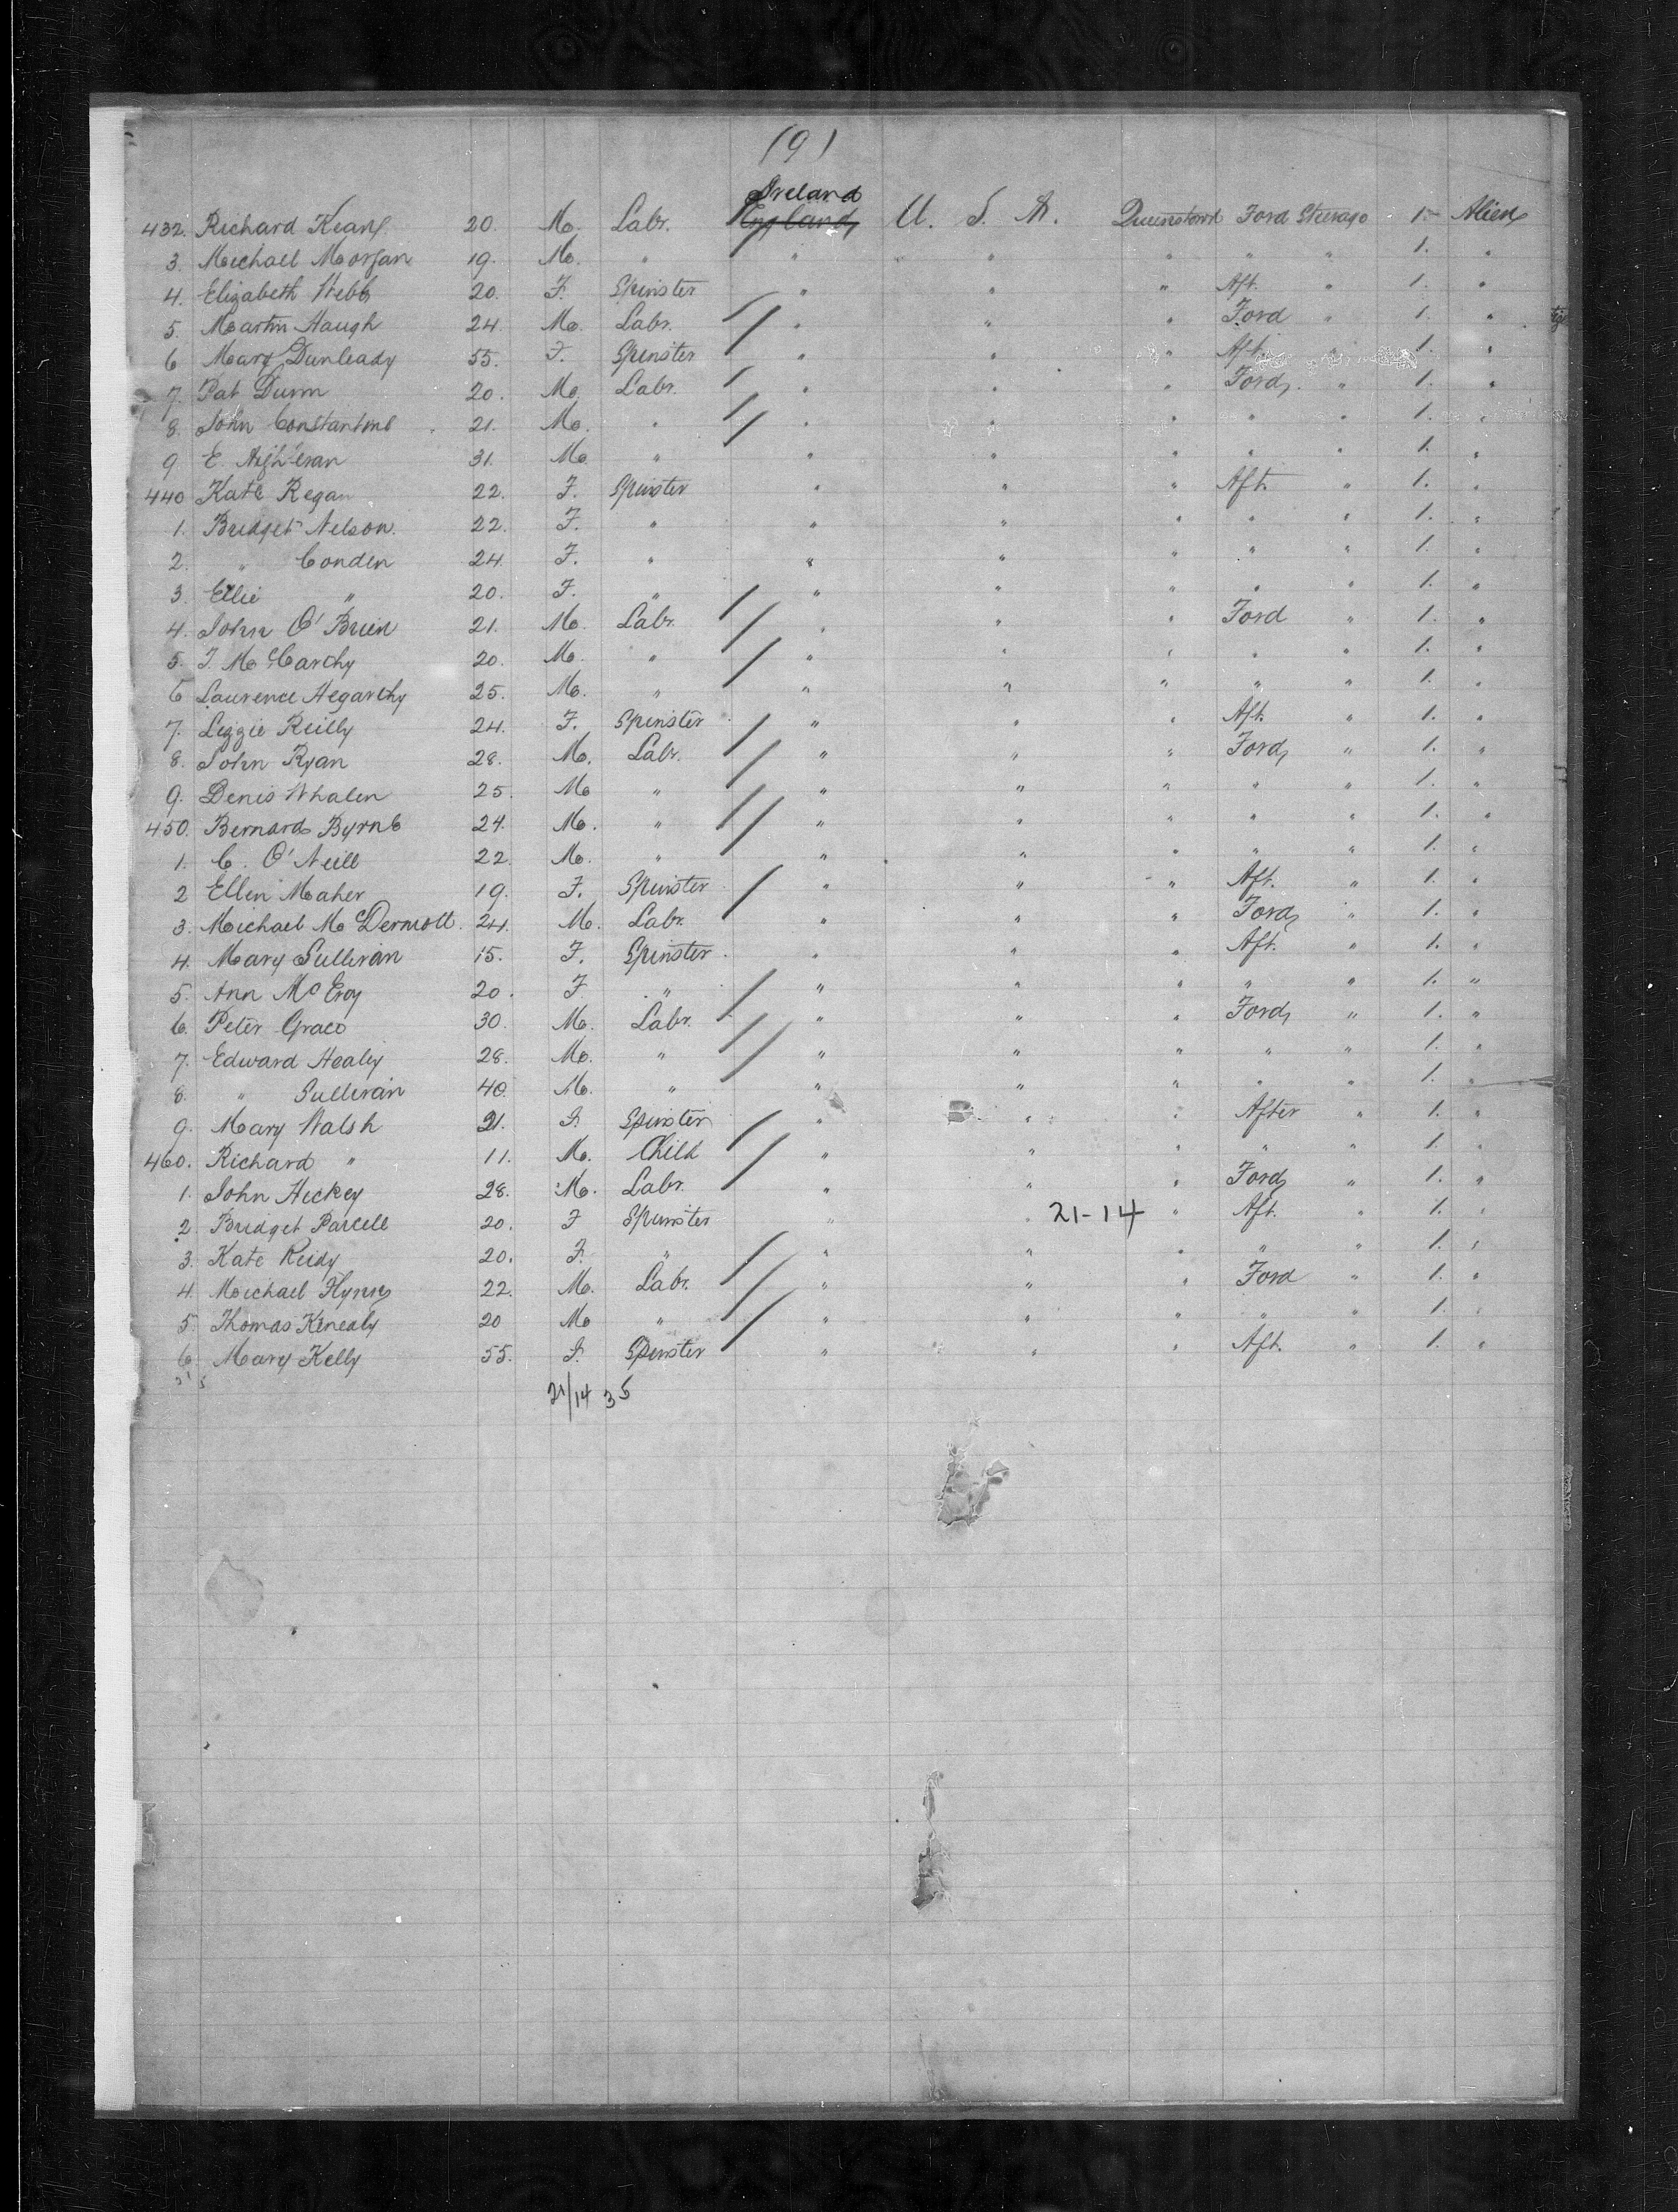 (9)
Ireland
432. Richard Kean 20. M. Labr. England U. S. A. Queenstown Ford Steerage 1. Alien
3. Michael Morgan 19. M. " " " " " " 1. "
4. Elizabeth Webb 20. F. Spinster " " " Aft. " 1. "
5. Martin Haugh 24. M. Labr. " " " Ford " 1. "
6 Mary Dunleady 55. F. Spinster " " " Aft. 1. "
7. Pat Dunn 20. M. Labr. " " " Ford. " 1. "
8. John Constantine 21. M. " " " " " " 1. "
9. E. 31. M. " " " " " " 1. "
440 Kate Regan 22. F. Spinster " " " Aft. " 1. "
1. Bridget Nelson. 22. F. " " " " " " 1. "
2. " Conden 24. F. " " " " " " 1. "
3. Ellie " 20. F. " " " " " " 1. "
4. John O'Brien 21. M. Labr. " " " Ford " 1. "
5. J. McCarthy 20. M. " " " " " " 1. "
6 Laurence Hegarthy 25. M. " " " " " " 1. "
7. Lizzie Reilly 24. F. Spinster " " " Aft. " 1. "
8. John Ryan 28. M. Labr. " " " Ford " 1. "
9. Denis Whalen 25. M " " " " " " 1. "
450. Bernard Byrne 24. M. " " " " " " 1. "
1. C. O'Neill 22. M. " " " " " " 1. "
2 Ellen Maher 19. F. Spinster " " " Aft. " 1. "
3. Michael McDermott. 24. M. Labr. " " " Ford " 1. "
4. Mary Sullivan 15. F. Spinster " " " Aft. " 1. "
5. Ann McEvoy 20. F " " " " " " 1. "
6. Peter Grace 30. M. Labr. " " " Ford " 1. "
7. Edward Healey 28. M. " " " " " " 1. "
8. " Sullivan 40. M. " " " " " " 1. "
9. Mary Walsh 21. F. Spinster " " " After " 1. "
460. Richard " 11. M. Child " " " " " 1. "
1. John Hickey 28. M. Labr. " " " Ford " 1. "
2. Bridget Purcell 20. F Spinster " " 21-14 " Aft. " 1. "
3. Kate Reidy 20. F. " " " " " " 1. "
4. Michael Flynn 22. M. Labr. " " " Ford " 1. "
5. Thomas Kenealy 20 M " " " " " " 1. "
6. Mary Kelly 55. F. Spinster " " " Aft. " 1. "
21/14 35